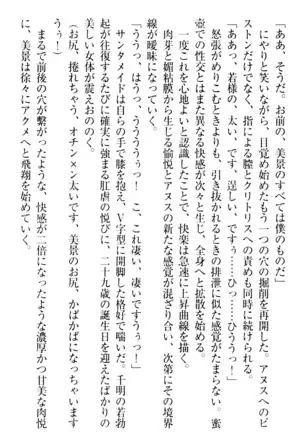 「ああ、そうだ。お前の、美景のすべては僕のものだ」
　にやりと笑いながら、目覚め始めたもう一つの穴の掘削を再開した。アヌスへのピ
ストンだけでなく、指による膣とクリトリスへの責めも同時に続けられる。
「ああっ、若様の、太い、です、逞しい、ですぅ……ひっ……ひううっ！」
　怒張がめりこむときの快感と、引き抜かれるときの排泄に似た感覚がたまらない。蜜
壺での性交とはまた異なる快感が生じ、全身へと拡散を始める。
　一度これを心地よいと認識したことで、快楽は急速に上昇曲線を描く。
　肉芽と媚粘膜から生じる愉悦とアヌスの新たな感覚が混ざり合い、次第にその境界
線が曖昧になっていく。
「ううっ、はうっ、うううぅっ！　こ、これ凄い、凄いですぅっ！」
　サンタメイドは自らの手で膝を抱え、Ｖ字型に開脚した格好で喘いだ。千明の若勃
起が往復するたびに確実に強まる肛虐の悦びに、二十九歳の誕生日を迎えたばかりの
美しい女体が震えおののく。
「お尻、捲れちゃう、オチン×ン太いです、美景のお尻、かぱかぱになっちゃいます
うぅっ！」
　まるで前後の穴が繋がったような、快感が一倍になったような濃厚かつ甘美な肉悦
に、美景は徐々にアクメへと飛翔を始めていく。